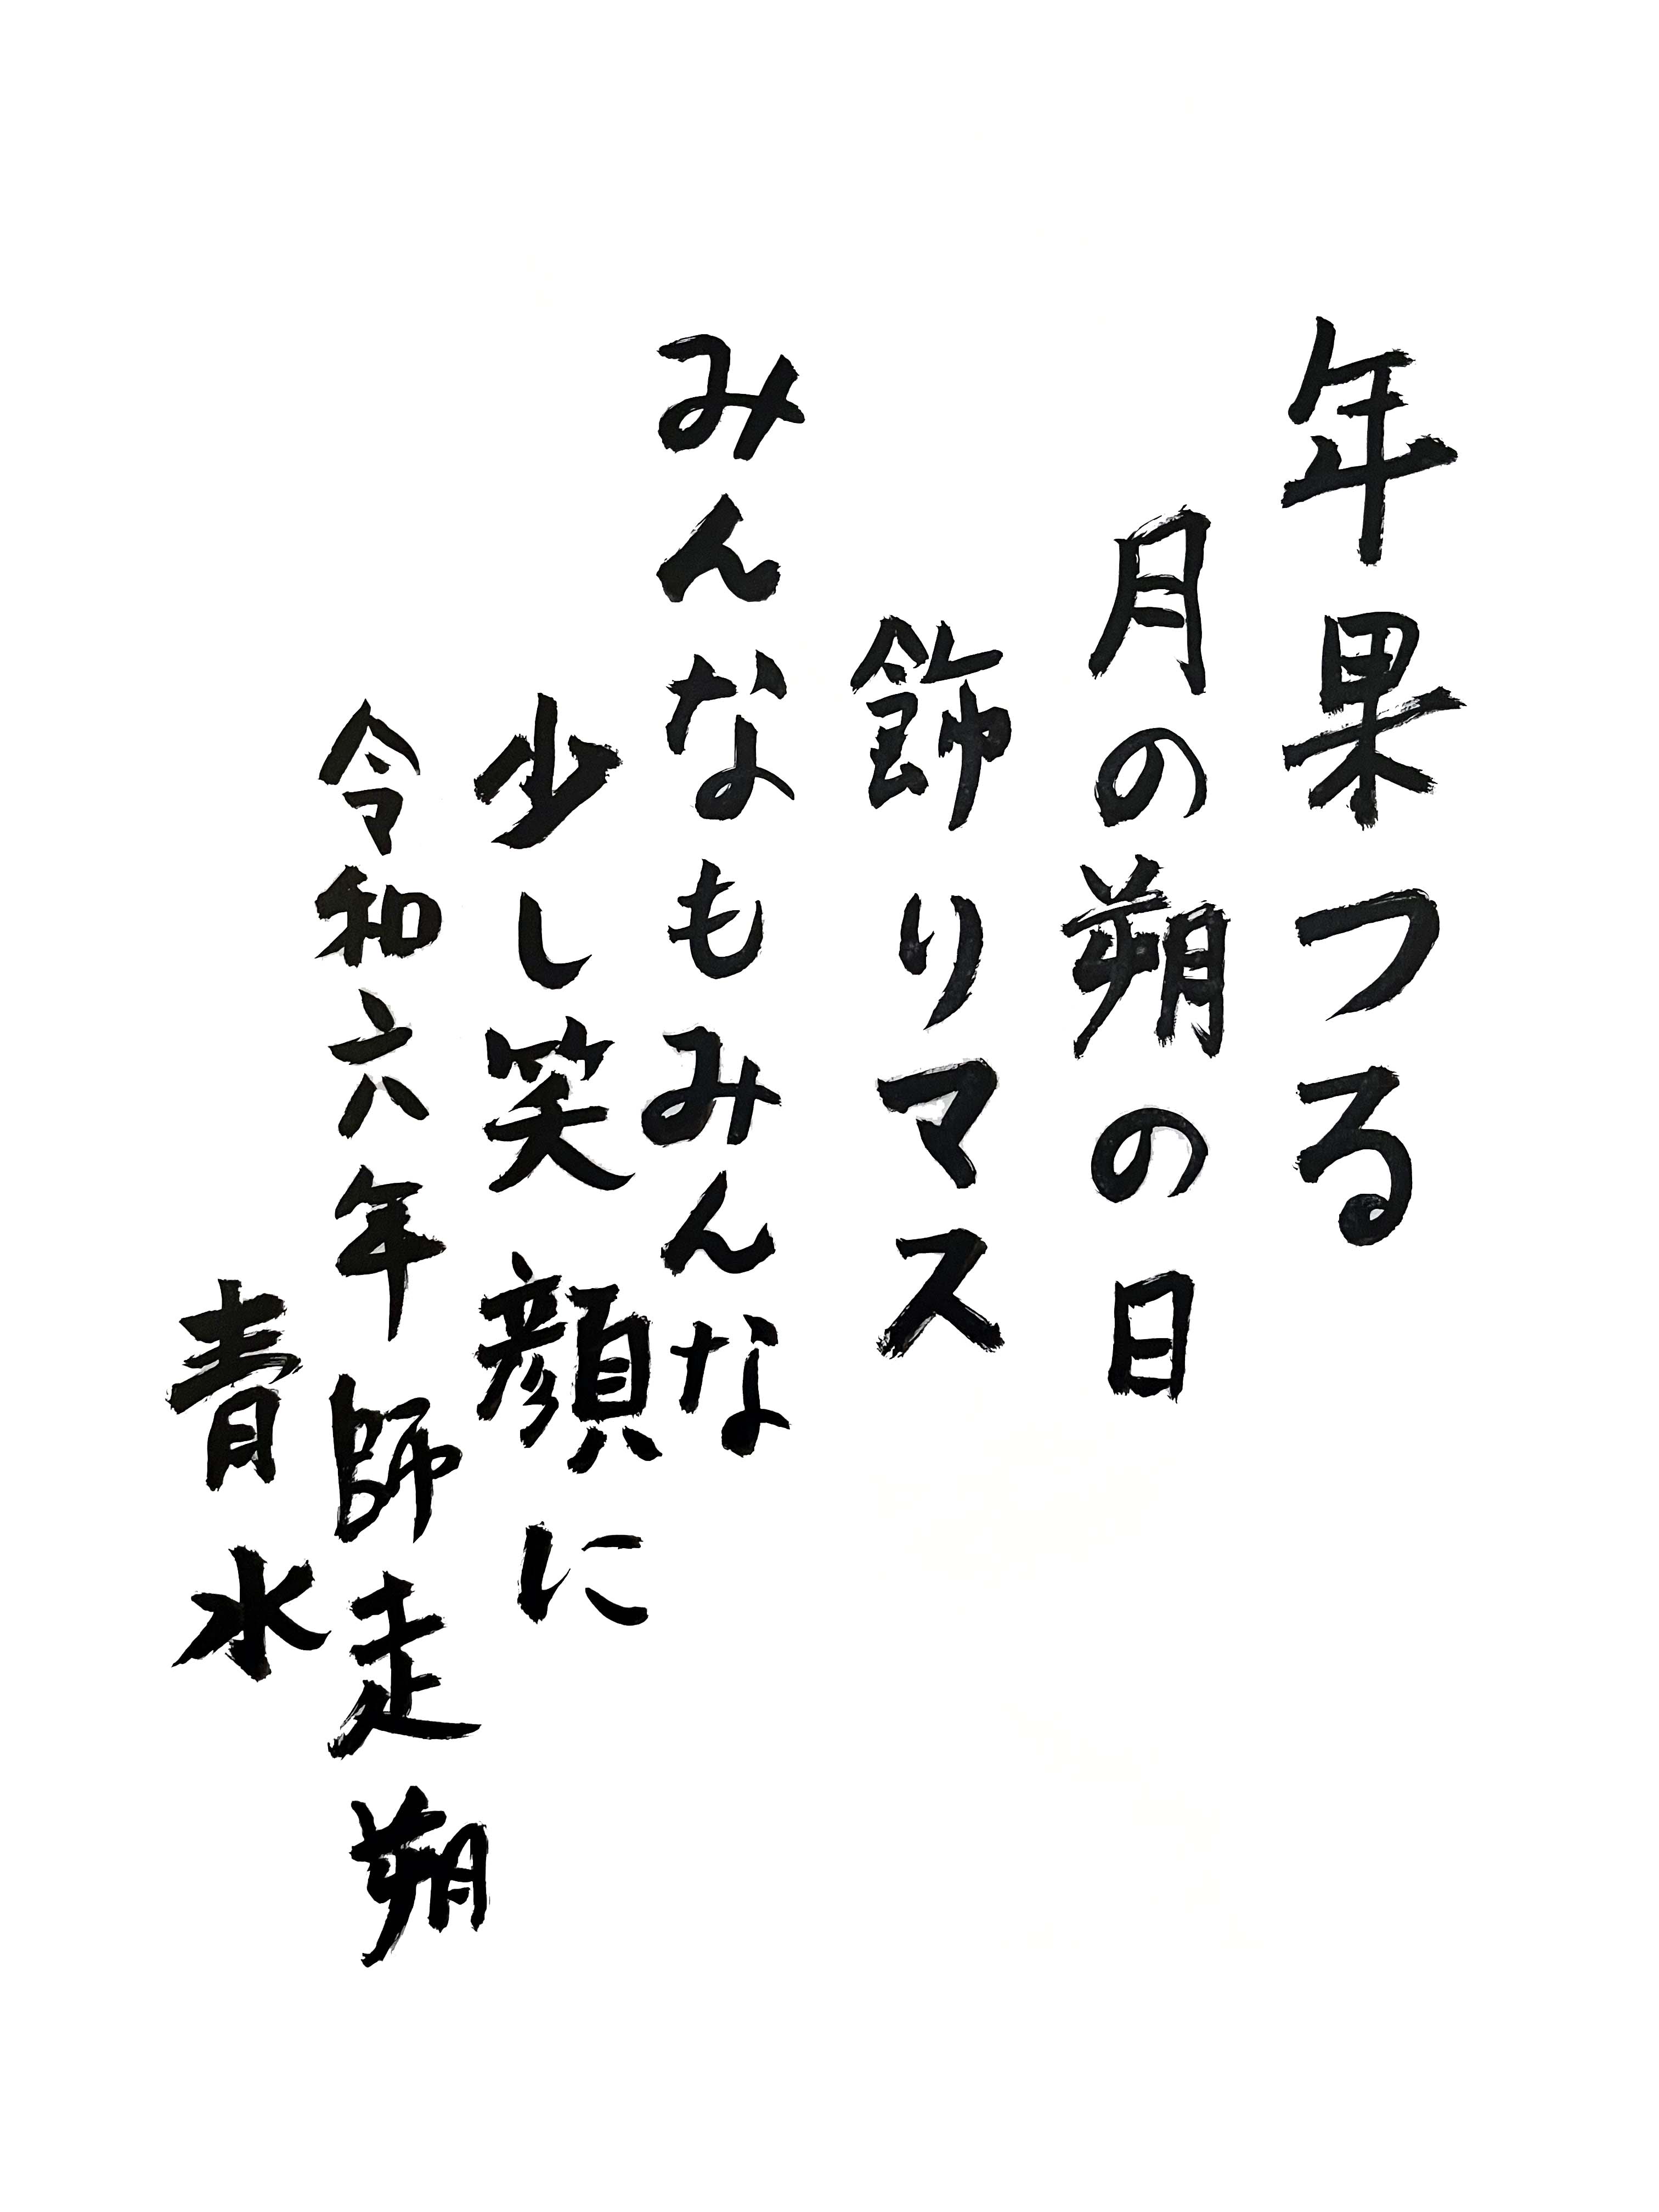 年果つる
月の朔の日
飾りマス
みんなもみんな
少し笑顔に
令和六年師走朔
青水